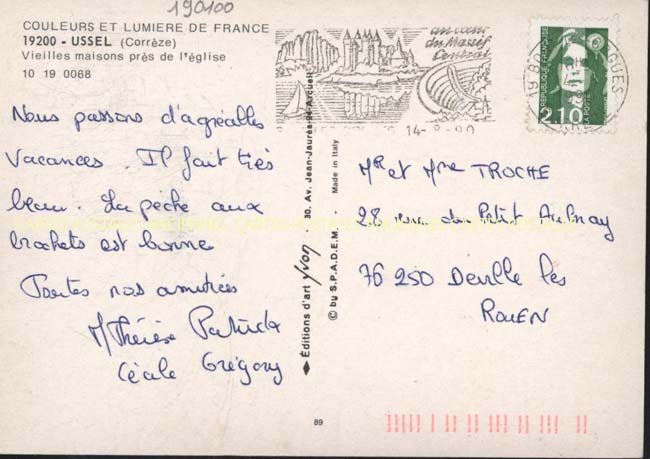 190100
COULEURS ET LUMIERE DE FRANCE
19200 - USSEL (Corrèze)
Vieilles maisons près de l'église
10 19 0068
Nous passons d'agréables
vacances. Il fait très
beau. La pêche aux
brochets est bonne
Toutes nos amitiés
M Thérèse Patrick
Cécile Grégory
Editions d'art yvon 30, Av. Jean-Jaurès-94 Arcueil
© by S.P.A.D.E.M. Made in Italy
89
au cœur
du Massif
Central
14-8-90
REPUBLIQUE FRANÇAISE
2,10
LA POSTE
Mr et Mme TROCHE
28 rue du Petit Aulnay
76 250 Deville les
ROUEN